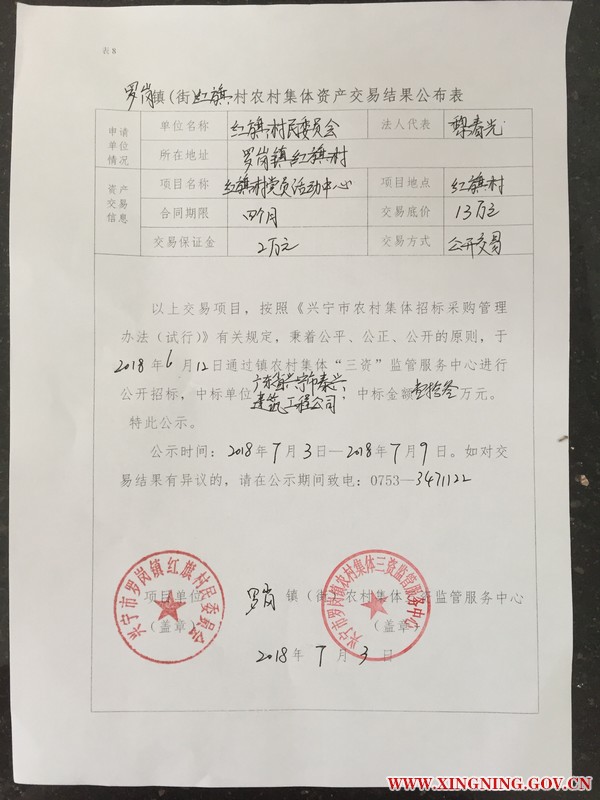 表8
罗岗镇(街)红旗村农村集体资产交易结果公布表
申请单位情况 单位名称 红旗村民委员会 法人代表 黎春光
所在地址 罗岗镇红旗村
资产交易信息 项目名称 红旗村党员活动中心 项目地点 红旗村
合同期限 四个月 交易底价 13万元
交易保证金 2万元 交易方式 公开交易
以上交易项目，按照《兴宁市农村集体招标采购管理
办法（试行）》有关规定，秉着公平、公正、公开的原则，于
2018年6月12日通过镇农村集体“三资”监管服务中心进行
公开招标，中标单位广东省兴宁市泰兴建筑工程公司；中标金额壹拾叁万元。
特此公示。
公示时间：2018年7月3日—2018年7月9日。如对交
易结果有异议的，请在公示期间致电：0753—3471122
项目单位 罗岗镇(街)农村集体三资监管服务中心
（盖章） （盖章）
2018年7月3日
兴宁市罗岗镇红旗村民委员会
兴宁市罗岗镇农村集体三资监管服务中心
WWW.XINGNING.GOV.CN